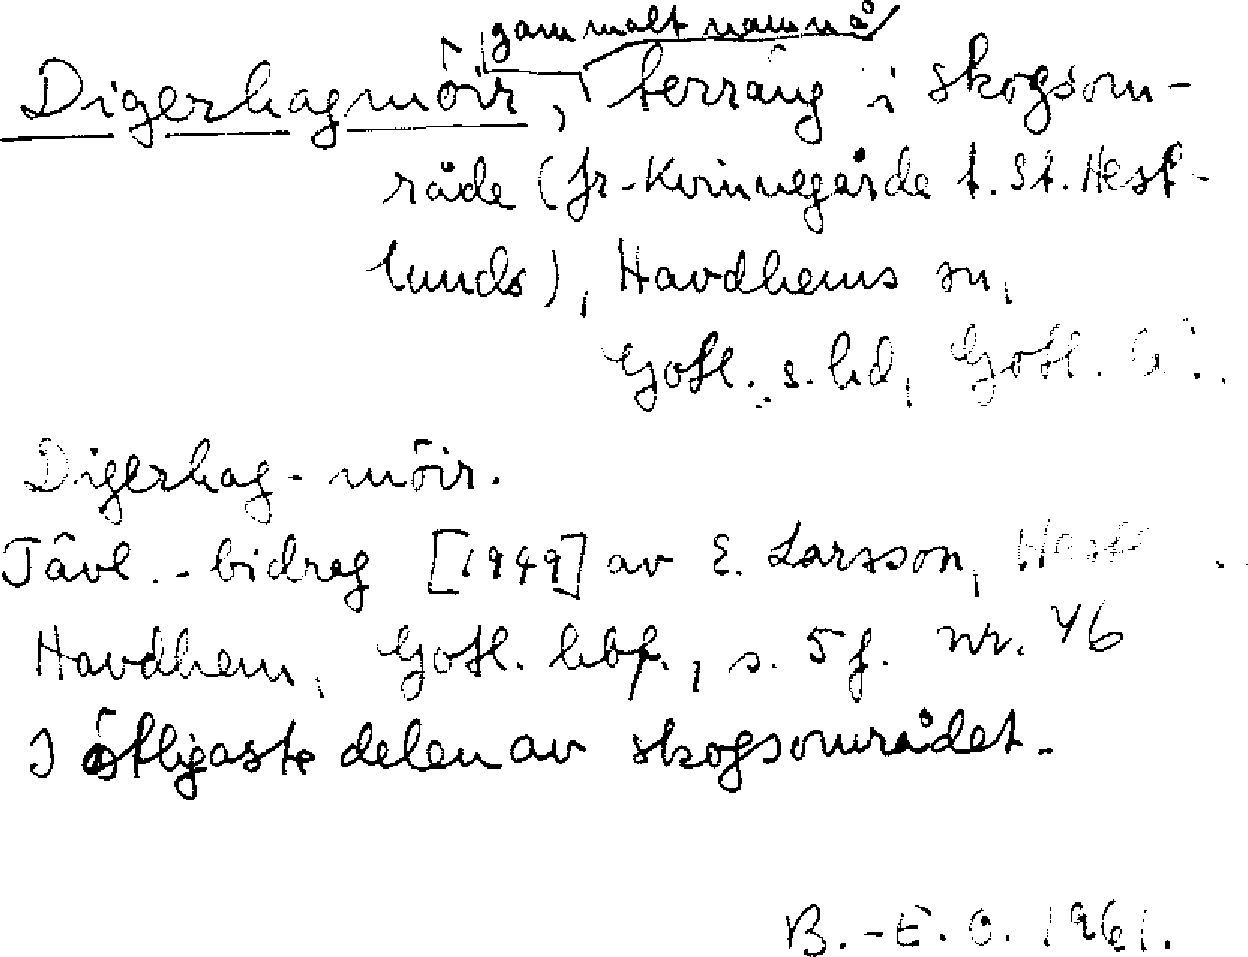 gammalt namn å
Digerhagmöir, terräng i skogsom-
råde (fr. Kvinnegårde t. St. Hest-
lunds), Havdhems sn,
Gotl. s. hd, Gotl. l.
Digerhag-möir.
Tävl.-bidrag [1949] av E. Larsson,
Havdhem, Gotl. hbf., s. 5 f. nr. 46
I östligaste delen av skogsområdet.
B.-E. O. 1961.